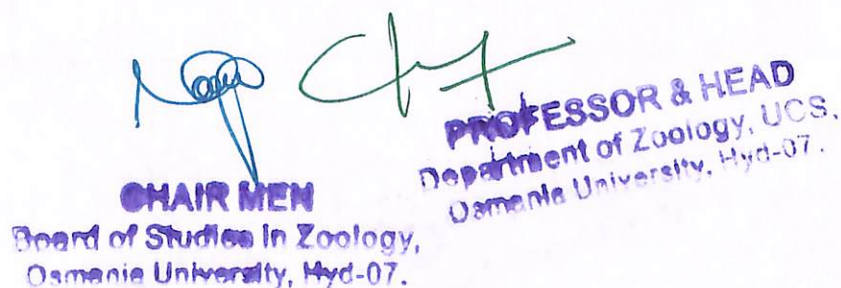 CHAIR MEN
Board of Studies in Zoology,
Osmania University, Hyd-07.
PROFESSOR & HEAD
Department of Zoology, UCS.
Osmania University, Hyd-07.